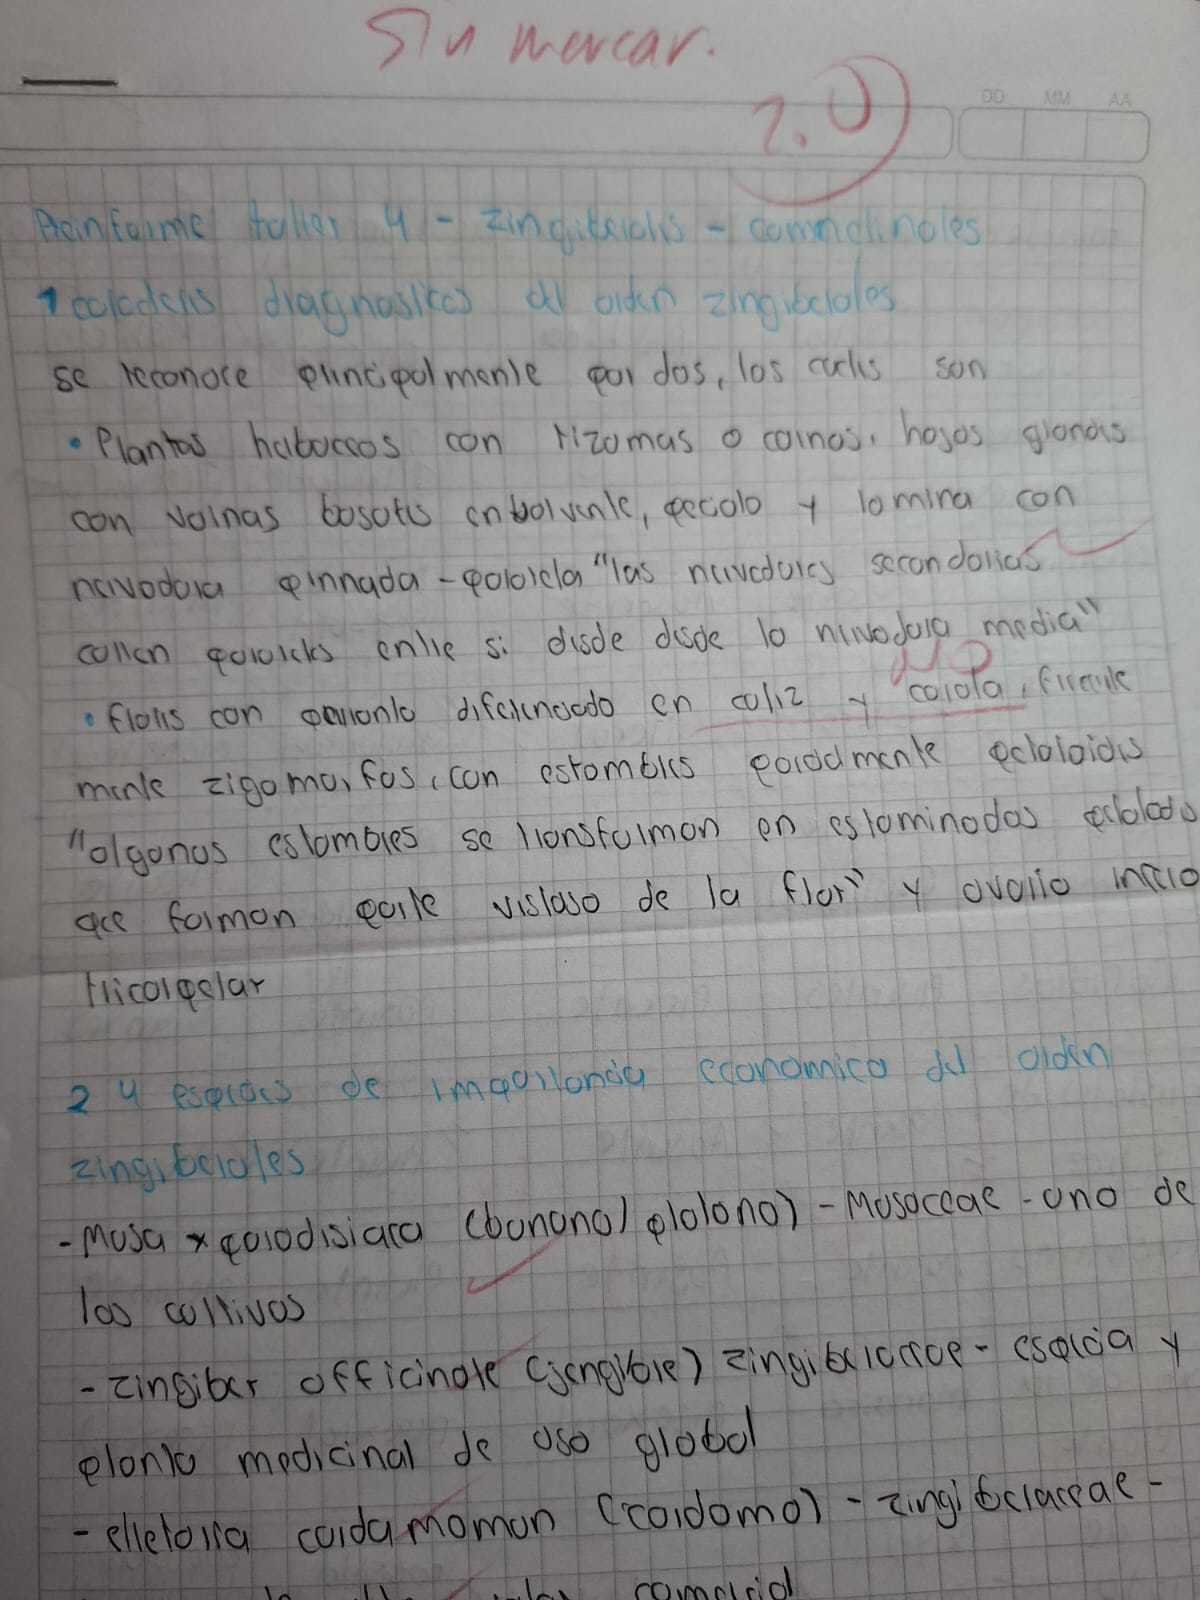 Sin mercar.
2.0
DD MM AA
Preinforme taller 4 - zingiberales - commelinales
1 carácteres diagnosticos del orden zingiberales
se reconoce principalmente por dos, los cuales son
• Plantas herbaceas con rizomas o cormos, hojas grandes
con vainas basales enbolvente, peciolo y lamina con
nervadura pinnada - paralela "las nervaduras secondarias
corren paralelas entre si desde desde la nervadura media"
NO
• flores con perianto diferenciado en caliz y corola, frecuente
mente zigomorfas, con estambres parcialmente petaloides
"algonos estambres se transforman en estaminodos petaloides
que forman parte vistoso de la flor" y ovario infero
tricarpelar
2 4 especies de importancia economica del orden
zingiberales
- Musa x paradisiaca (banano/platano) - Musaceae - uno de
los cultivos
- zingiber officinale (jengibre) zingiberaceae - especia y
planta medicinal de uso global
- elletaria cardamomun (cardamo) - zingiberaceae -
comercial